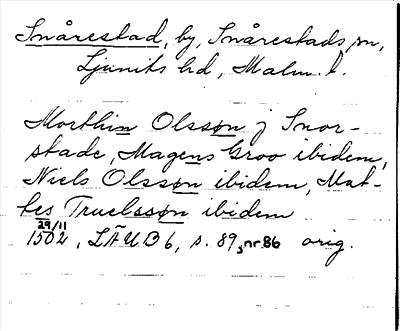 Snårestad, by, Snårestads sn,
Ljunits hd, Malm. l.
Morthin Olssøn j Snor-
stade, Magens Groo ibidem,
Niels Olssøn ibidem, Mat-
tes Truelssøn ibidem
29/11
1502, LÄUB 6, s. 89, nr 86 orig.